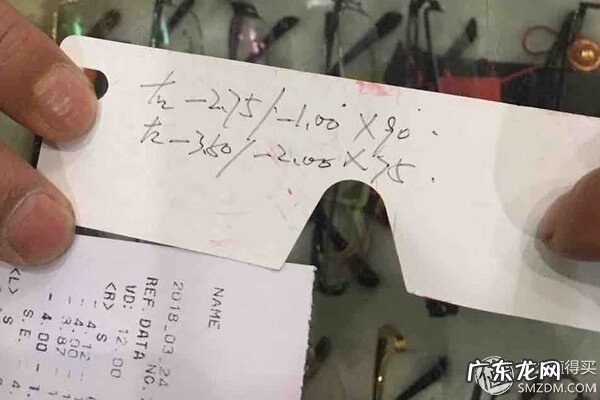 右 -2.75/-1.00 × 90°.
左 -3.50/-2.00 × 75.
NAME
2018_03_24
REF. DATA NO.
VD: 12.00
<R> S
- 4.12
- 4.00
- 3.87
S.E. - 4.
<L> S
- 4.00 - 1.
值得买
广东龙网
SMZDM.COM